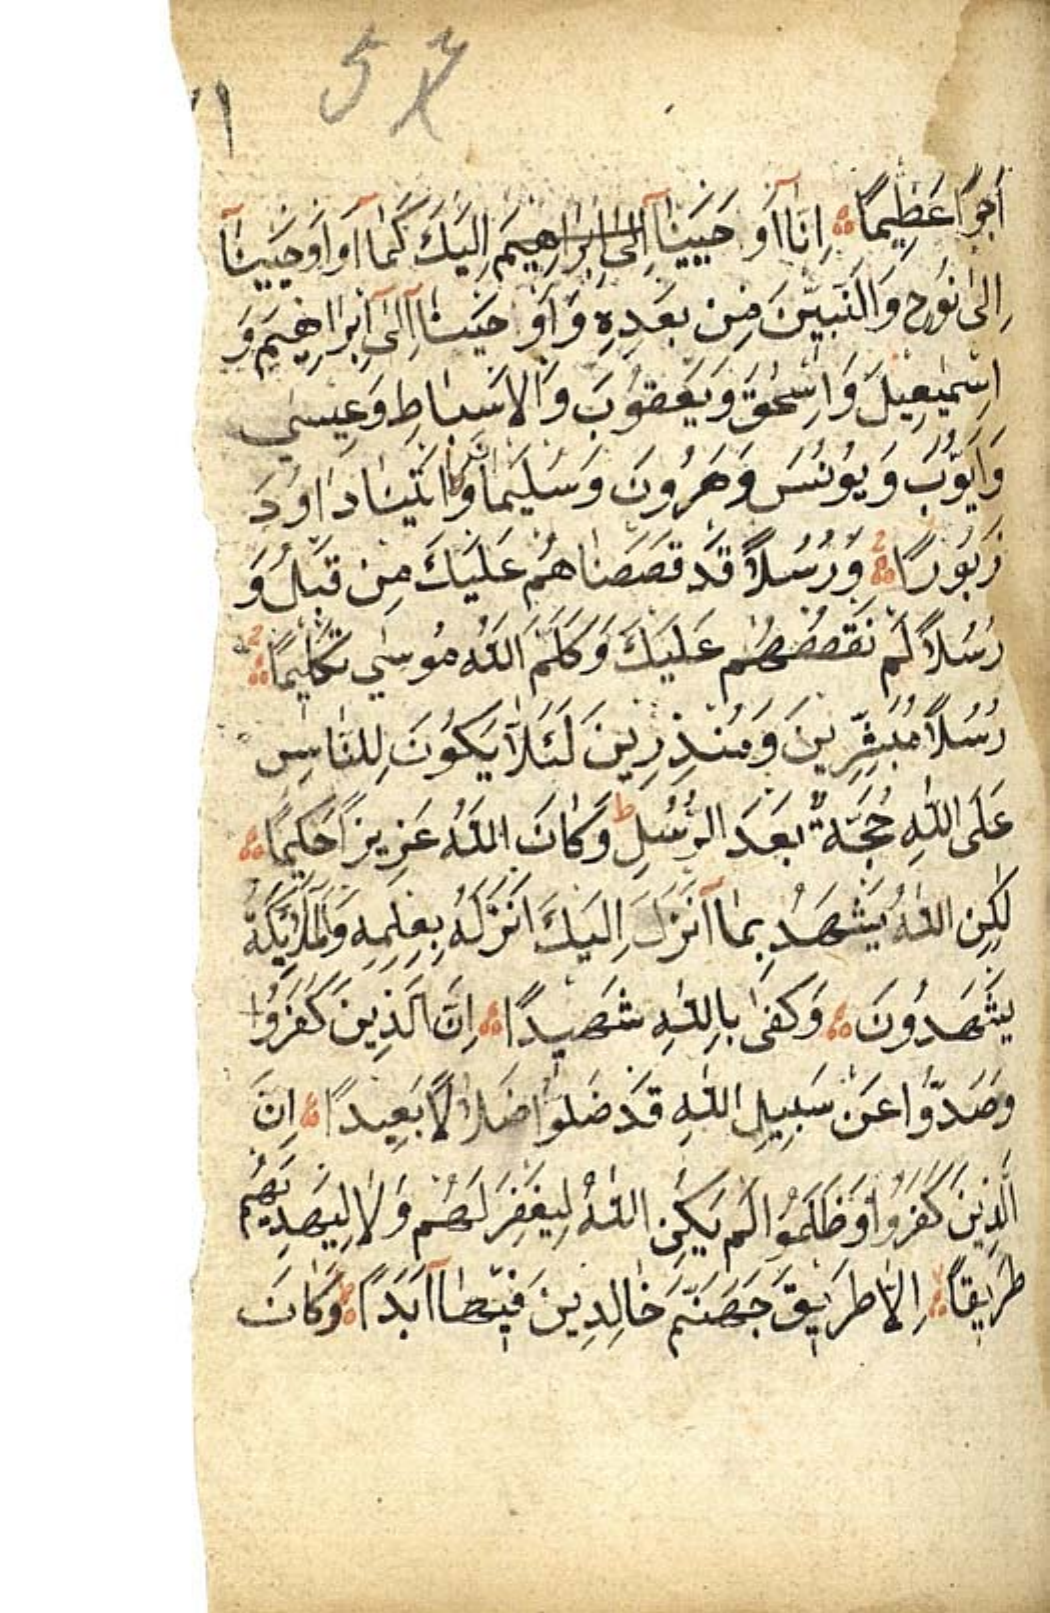 5 7
١
أَجْرًا عَظِيمًا اِنَّا اَوْحَيْنَا اِلٰى اِبْرَاهِيمَ اِلَيْكَ كَمَا اَوْ اَوْحَيْنَا
اِلٰى نُوحٍ وَالنَّبِيّٖنَ مِنْ بَعْدِهِ وَاَوْحَيْنَا اِلٰى اِبْرَاهِيمَ وَ
اِسْمٰعِيلَ وَاِسْحٰقَ وَيَعْقُوبَ وَالْاَسْبَاطِ وَعِيسٰي
وَاَيُّوبَ وَيُونُسَ وَهٰرُونَ وَسُلَيْمَانَ وَاٰتَيْنَا دَاوُدَ
زَبُورًا وَرُسُلًا قَدْ قَصَصْنَاهُمْ عَلَيْكَ مِنْ قَبْلُ وَ
رُسُلًا لَمْ نَقْصُصْهُمْ عَلَيْكَ وَكَلَّمَ اللّٰهُ مُوسٰي تَكْلِيمًا
رُسُلًا مُبَشِّرِينَ وَمُنْذِرِينَ لِئَلَّا يَكُونَ لِلنَّاسِ
عَلَى اللّٰهِ حُجَّةٌ بَعْدَ الرُّسُلِ ط وَكَانَ اللّٰهُ عَزِيزًا حَكِيمًا
لٰكِنِ اللّٰهُ يَشْهَدُ بِمَا اَنْزَلَ اِلَيْكَ اَنْزَلَهُ بِعِلْمِهِ وَالْمَلٰئِكَةُ
يَشْهَدُونَ وَكَفٰى بِاللّٰهِ شَهِيدًا اِنَّ الَّذِينَ كَفَرُوا
وَصَدُّوا عَنْ سَبِيلِ اللّٰهِ قَدْ ضَلُّوا ضَلَالًا بَعِيدًا اِنَّ
الَّذِينَ كَفَرُوا وَظَلَمُوا لَمْ يَكُنِ اللّٰهُ لِيَغْفِرَ لَهُمْ وَلَا لِيَهْدِيَهُمْ
طَرِيقًا اِلَّا طَرِيقَ جَهَنَّمَ خَالِدِينَ فِيهَا اَبَدًا وَكَانَ